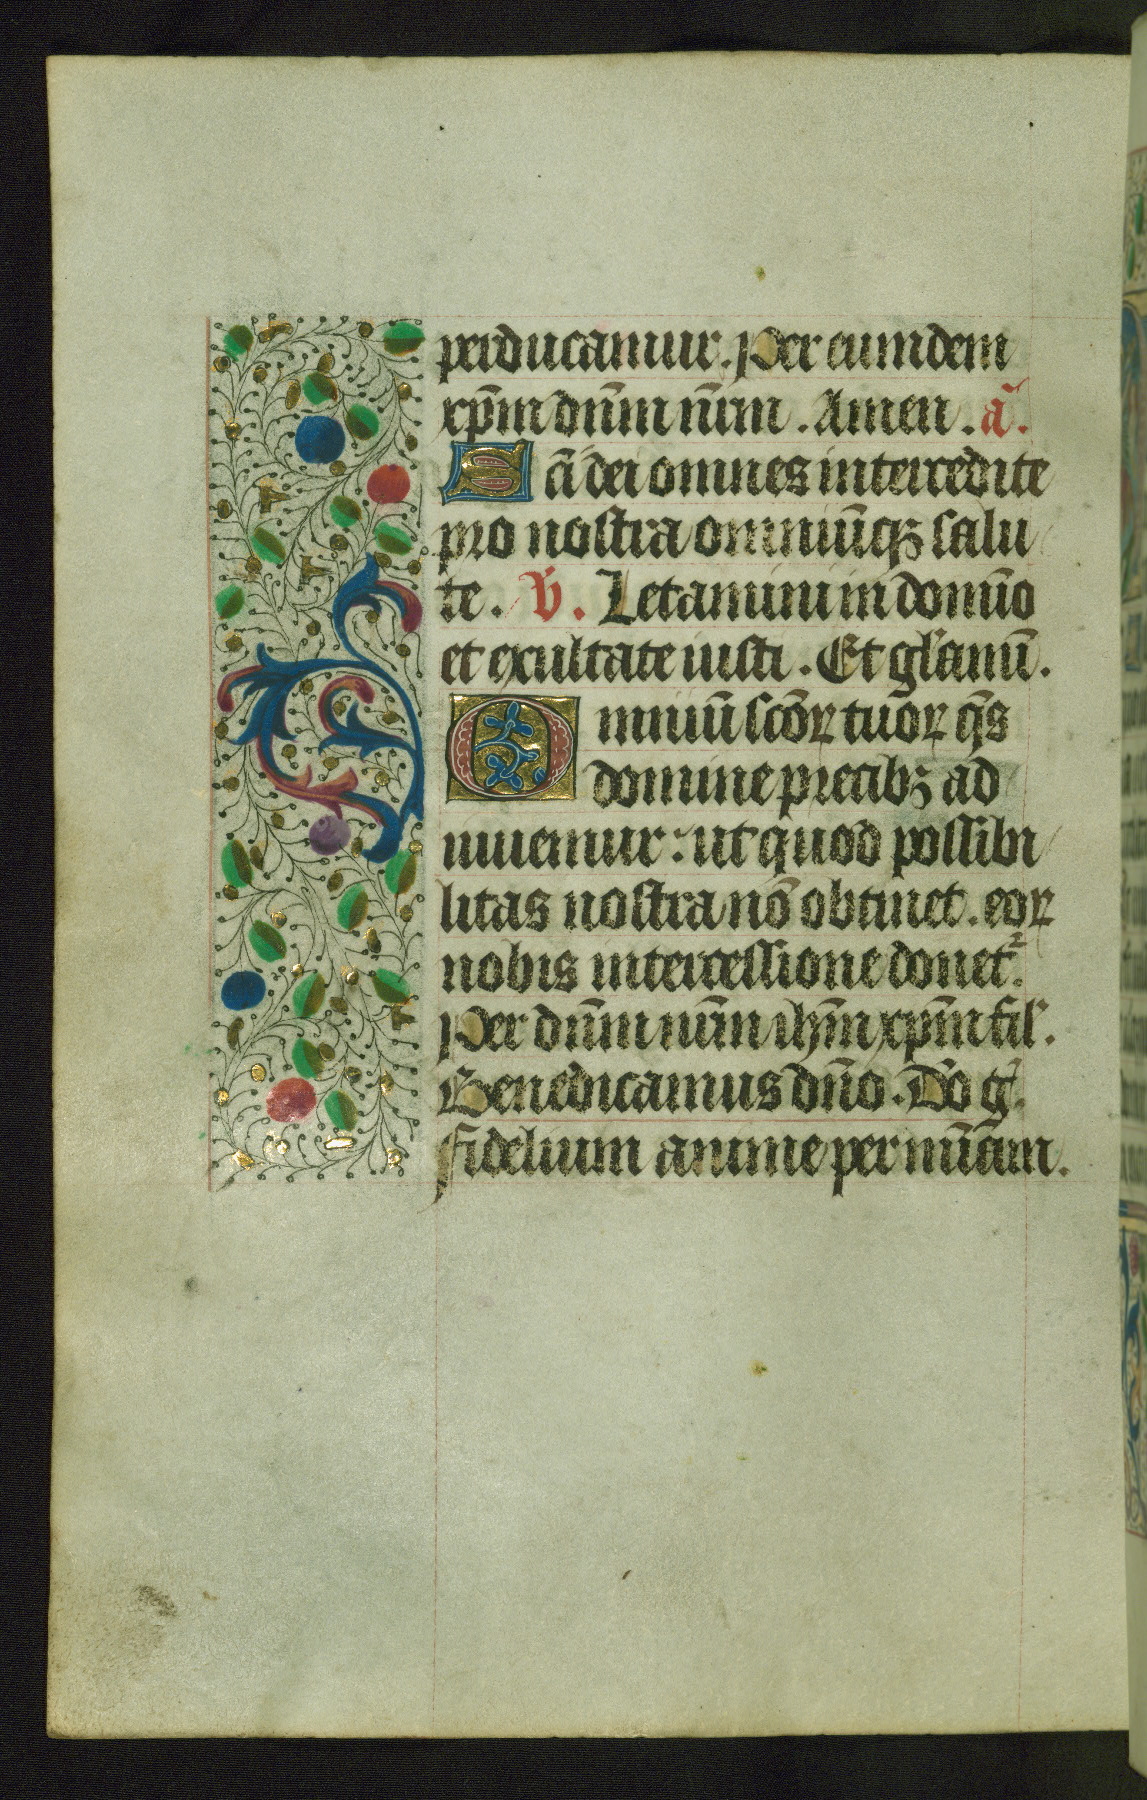 perducamur. Per eumdem
xp̄m dn̄m nr̄m. Amen. a᷈.
Sc̄i dei omnes intercedite
pro nostra omniūqꝫ salu
te. v̄. Letamini in domīo
et exultate iusti. Et gl̄amī.
Omniū scōꝝ tuoꝝ qs̄
domine precibꝫ ad
iuuemur: ut quod possibi
litas nostra nō obtinet. eoꝝ
nobis intercessione donet᷑.
Per dn̄m nr̄m ih̄m xp̄m fil̄.
Benedicamus dn̄o. Dō g̅.
Fidelium anime per mīam.